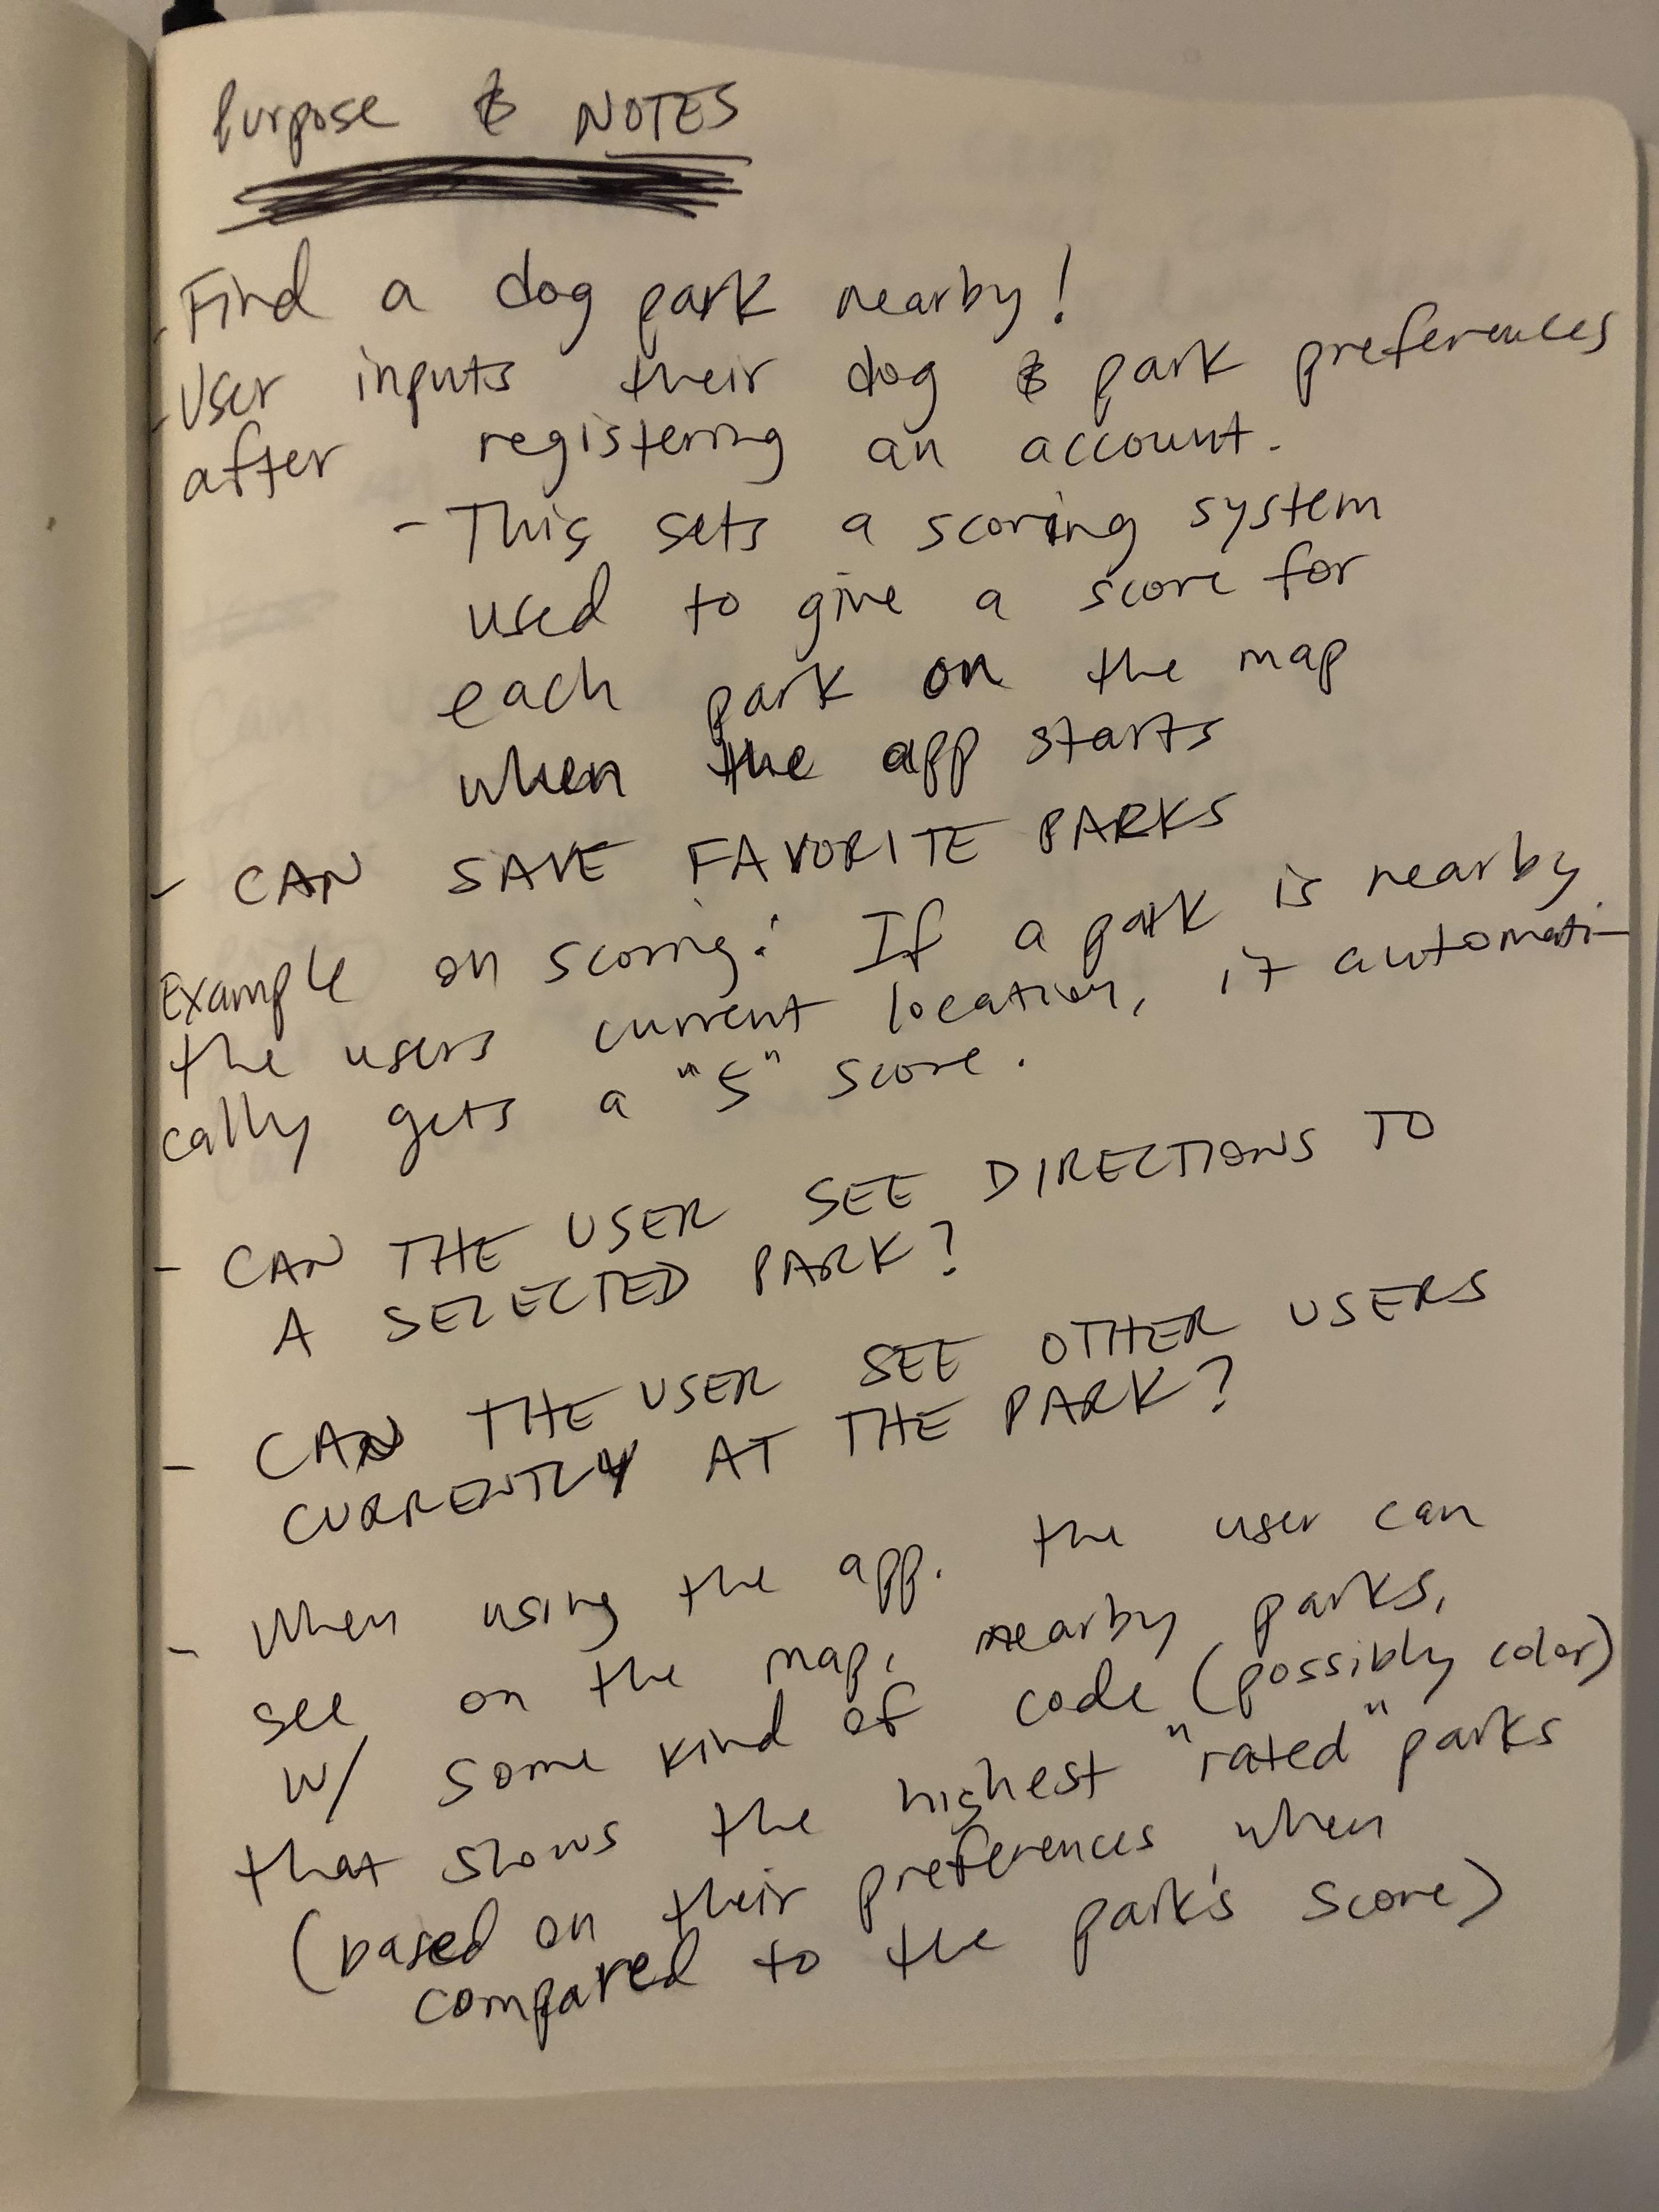 Purpose & NOTES
- Find a dog park nearby!
- User inputs their dog & park preferences
after registering an account.
- This sets a scoring system
used to give a score for
each park on the map
when the app starts
- CAN SAVE FAVORITE PARKS
Example on scoring: If a park is nearby
the users current location, it automati-
cally gets a "5" score.
- CAN THE USER SEE DIRECTIONS TO
A SELECTED PARK?
- CAN THE USER SEE OTHER USERS
CURRENTLY AT THE PARK?
- When using the app. the user can
see on the map, nearby parks,
w/ some kind of code (possibly color)
that shows the highest "rated" parks
(based on their preferences, when
compared to the park's score)